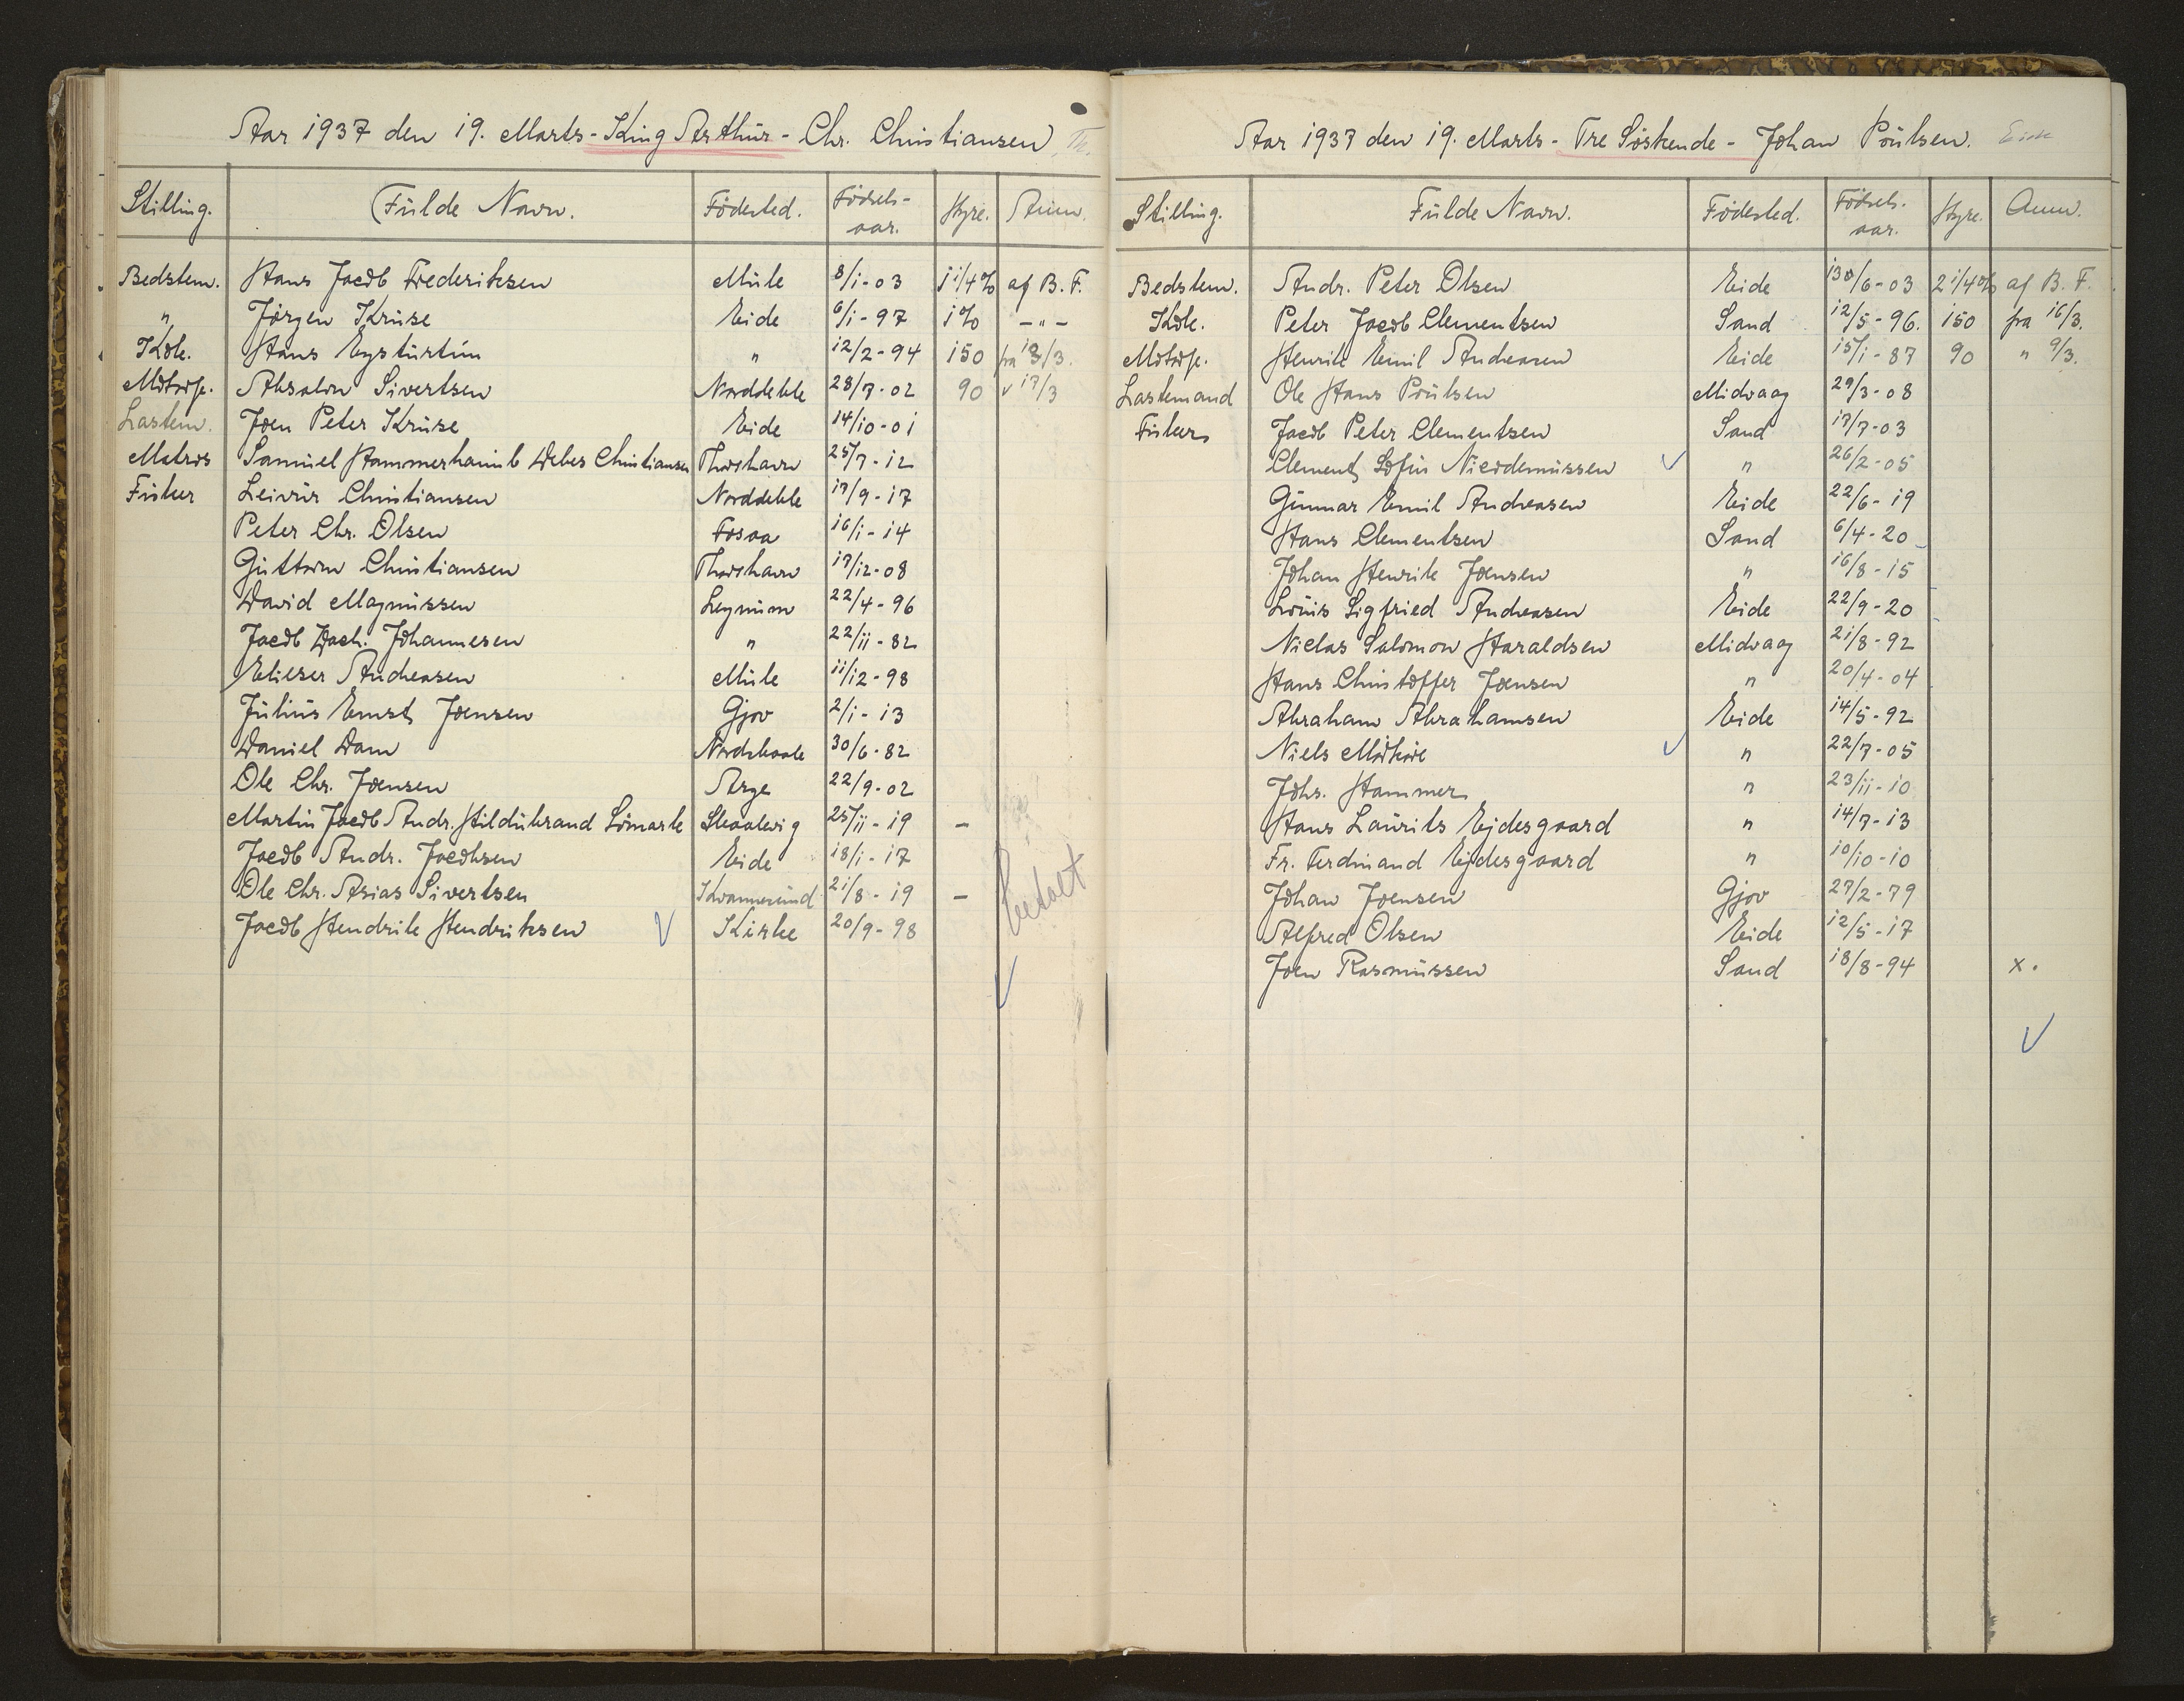 Aar 1937 den 19. Marts - King Arthur - Chr. Christiansen, Th.
Stilling. Fulde Navn. Födested. Födsels- aar. Hyre. Anm.
Bedstem. Hans Jacob Frederiksen Mule 8/1-03 1 1/4% af B. F.
" Jörgen Kruse Eide 6/1-97 1% -"-
Kok. Hans Eysturtun " 12/2-94 150 fra 18/3.
Motorp. Absalon Sivertsen Norddeble 28/7-02 90 " 17/3
Lastem. Joen Peter Kruse Eide 14/10-01
Matros Samuel Hammerhaimb Weber Christiansen Thorshavn 25/7-12
Fisker Leivur Christiansen Norddeble 17/9-17
Peter Chr. Olsen Fosaa 16/1-14
Guttorm Christiansen Thorshavn 17/12-08
David Magnussen Leynum 22/4-96
Jacob Zach. Johannesen " 22/11-82
Elieser Andreasen Mule 11/12-98
Julius Ernst Joensen Gjov 2/1-13
Daniel Dam Nordskaale 30/6-82
Ole Chr. Joensen Arge 22/9-02
Martin Jacob Andr. Hildubrand Sömark Skaalevig 25/11-19 -
Jacob Andr. Jacobsen Eide 18/1-17
Ole Chr. Asias Sivertsen Kvannesund 21/8-19 -
Jacob Hendrik Hendriksen Kirke 20/9-98
betalt
Aar 1937 den 19. Marts - Tre Söskende - Johan Poulsen. Eide
Stilling. Fulde Navn. Födested. Födsels- aar. Hyre. Anm.
Bedstem. Andr. Peter Olsen Eide 30/6-03 2 1/4% af B. F.
Kok. Peter Jacob Clementsen Sand 12/5-96. 150 fra 16/3.
Motorp. Henrik Emil Andreasen Eide 15/1-87 90 " 9/3.
Lastemand Ole Hans Poulsen Midvaag 29/3-08
Fisker Jacob Peter Clementsen Sand 17/7-03
Clement Sofus Nicodemussen " 26/2-05
Gunnar Emil Andreasen Eide 22/6-19
Hans Clementsen Sand 6/4-20
Johan Henrik Joensen " 16/8-15
Louis Sigfried Andreasen Eide 22/9-20
Niclas Salomon Haraldsen Midvaag 21/8-92
Hans Christoffer Joensen " 20/4-04
Abraham Abrahamsen Eide 14/5-92
Niels Mörköre " 22/7-05
Johs. Hammer " 23/11-10
Hans Laurits Ejdesgaard " 14/7-13
Fr. Ferdinand Ejdesgaard " 10/10-10
Johan Joensen Gjov 27/2-79
Alfred Olsen Eide 12/5-17
Joen Rasmussen Sand 18/8-94 x.